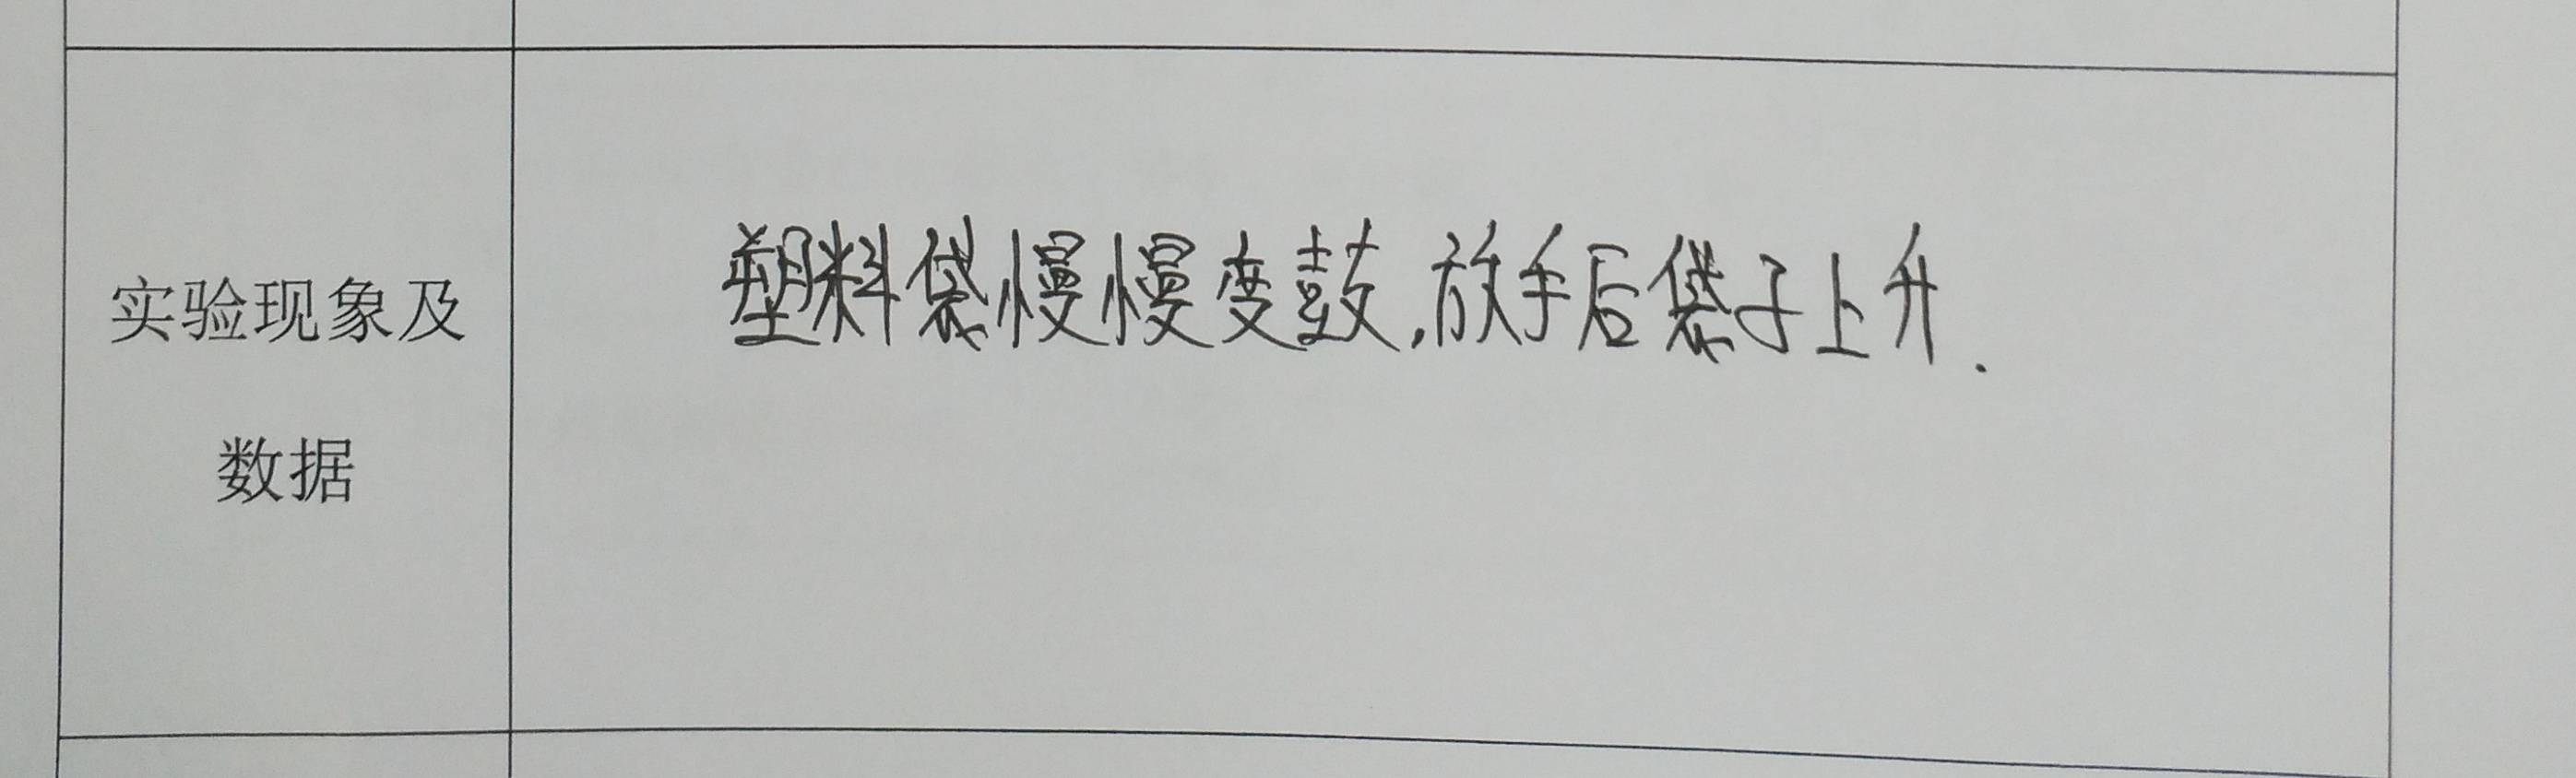 实验现象及
数据
塑料袋慢慢变鼓,放手后袋子上升.